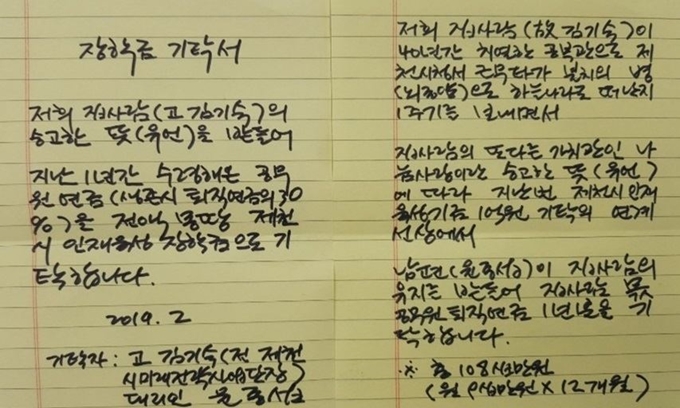 장학금 기탁서
저희 집사람(고 김기숙)의
숭고한 뜻(유언)을 받들어
지난 1년간 수령해온 공무
원 연금(생존시 퇴직연금의30
%)을 전액 봉따농 제천
시 인재육성 장학금으로 기
탁합니다.
2019. 2
기탁자 : 고 김기숙(전 제천
시미래전략사업단장)
대리인 윤종섭
저희 집사람(故 김기숙)이
40년간 치열한 공복관으로 제
천시청서 근무타가 불치의 병
(뇌종양)으로 하늘나라로 떠난지
1주기를 보내면서
집사람의 또다른 가치관인 나
눔사랑이란 숭고한 뜻(유언)
에 따라 지난번 제천시 인재
육성기금 1억원 기탁의 연계
선상에서
남편(윤종섭)이 집사람의
유지를 받들어 집사람 몫
공무원 퇴직연금 1년분을 기
탁합니다.
※ 총 108십만원
(월 9십만원 X 12개월)